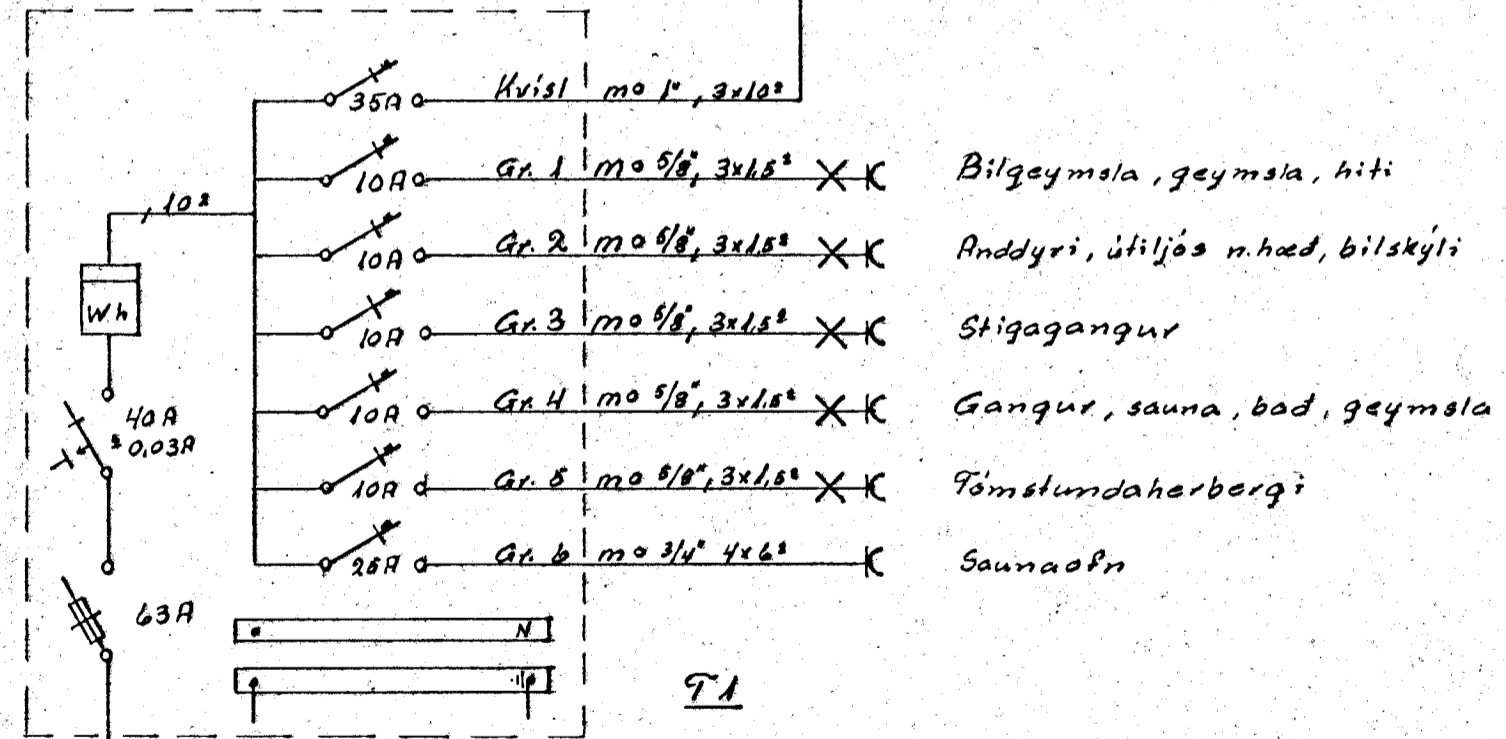 35A Kvísl mo 1", 3x10²
10A Gr. 1 mo 5/8", 3x1,5² Bilgeymsla, geymsla, hiti
, 10²
10A Gr. 2 mo 5/8", 3x1,5² Anddyri, útiljós n.hæð, bilskýli
Wh
10A Gr. 3 mo 5/8", 3x1,5² Stigagangur
10A Gr. 4 mo 5/8", 3x1,5² Gangur, sauna, bað, geymsla
40A
0,03A
10A Gr. 5 mo 5/8", 3x1,5² Tómstundaherbergi
25A Gr. 6 mo 3/4" 4x6² Saunaofn
63A
N
T1